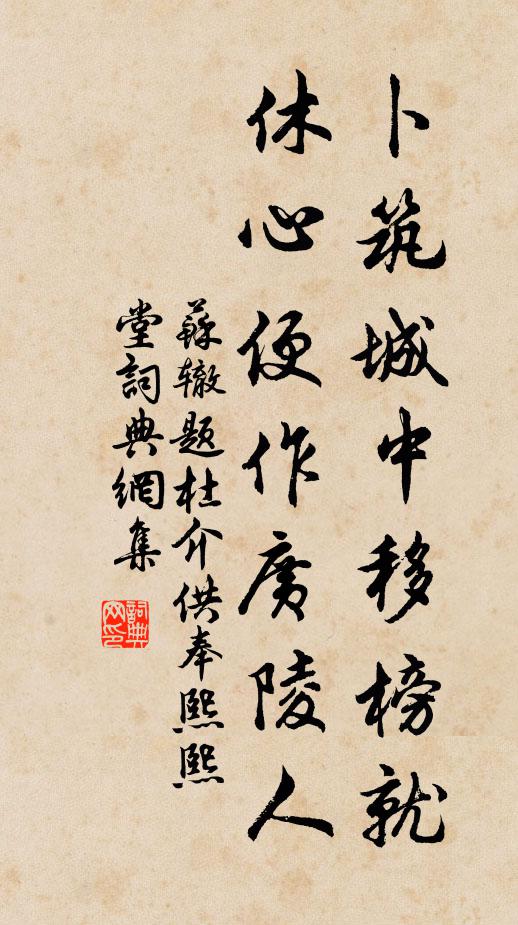 卜筑城中移榜就
休心便作廣陵人
蘇辙题杜介供奉熙熙
堂詞典網集
詞典网印